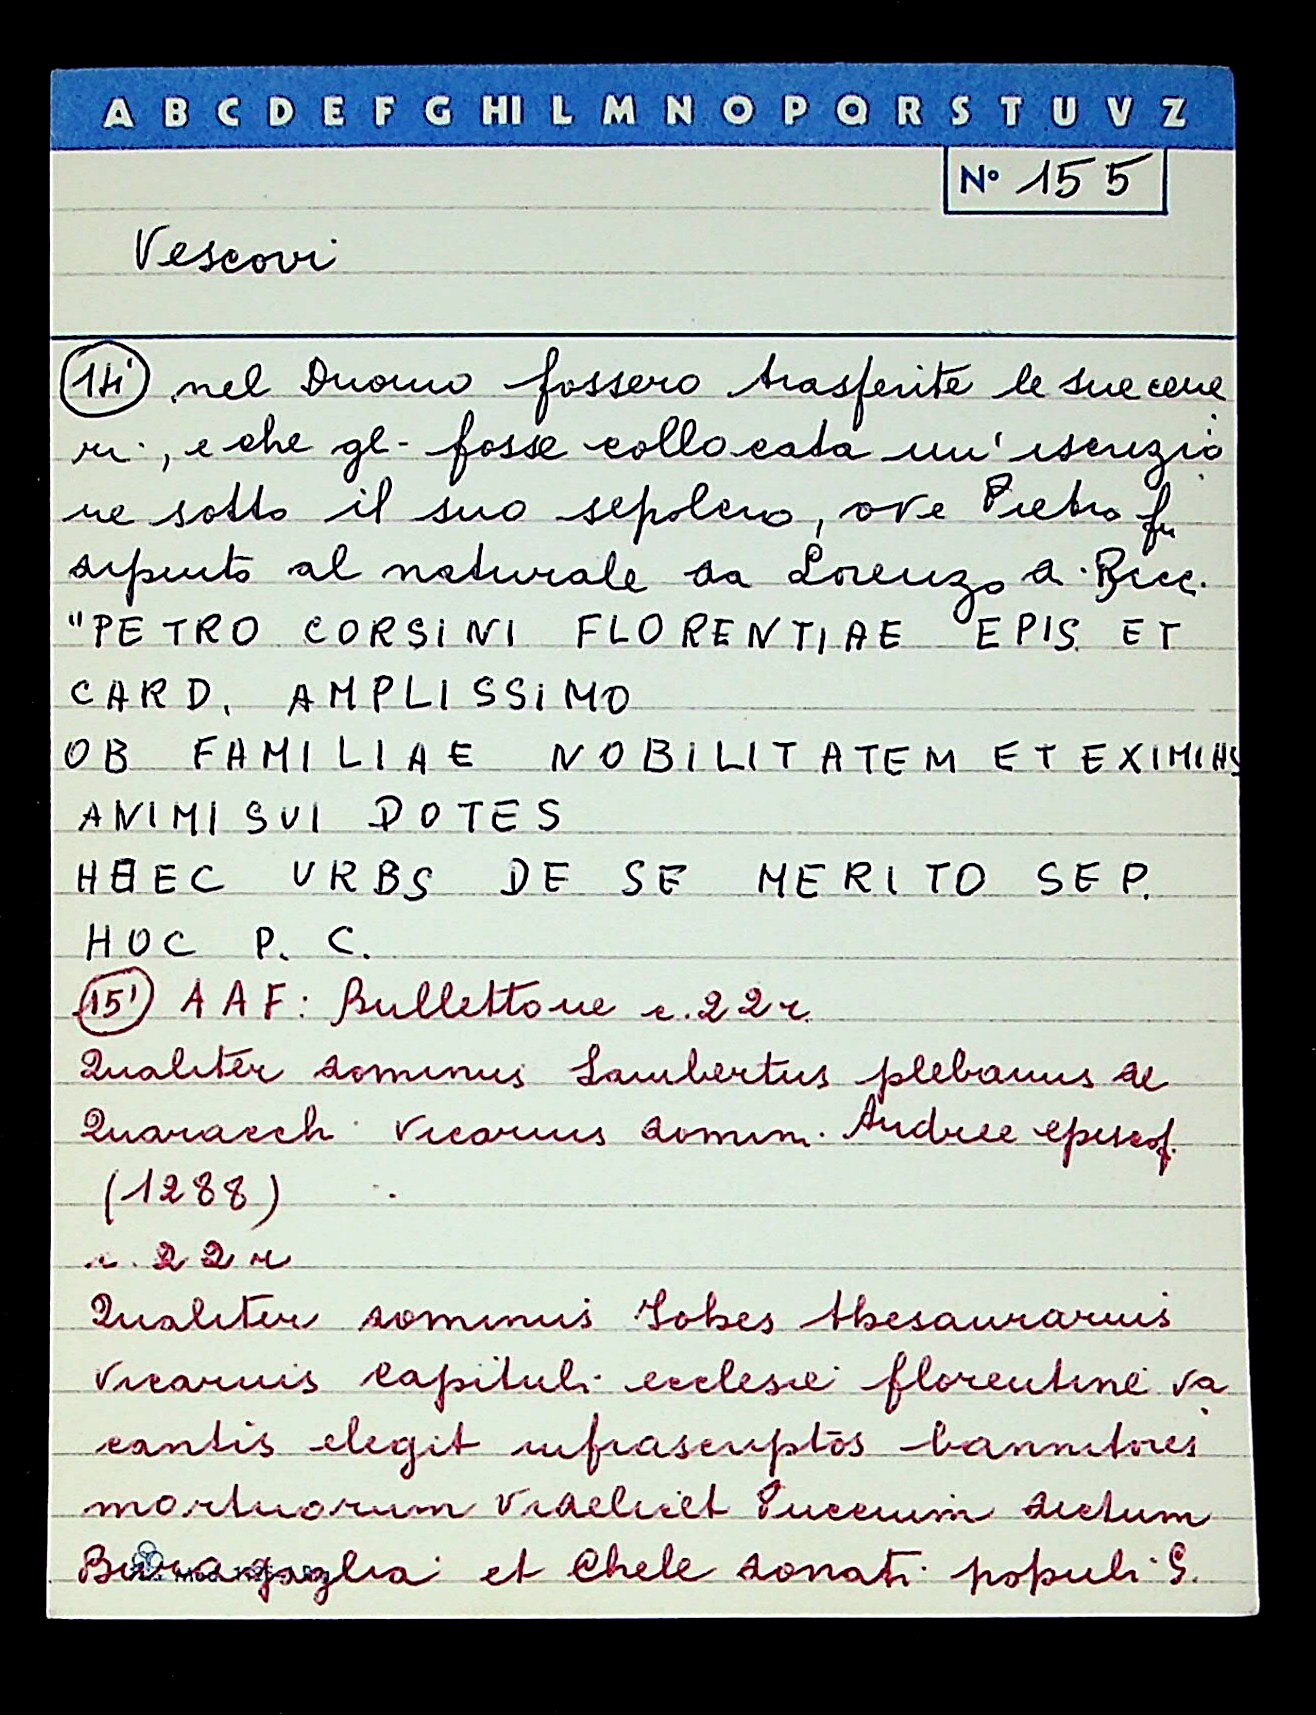 A B C D E F G HI L M N O P Q R S T U V Z
N° 155
Vescovi
14' nel Duomo fossero trasferite le sue cene
ri, e che gli fosse collocata un'iscrizio
ne sotto il suo sepolcro, ove Pietro fu
dipinto al naturale da Lorenzo di Bicc.
"PETRO CORSINI FLORENTIAE EPIS. ET
CARD. AMPLISSIMO
OB FAMILIAE NOBILITATEM ET EXIMIAS
ANIMI SUI DOTES
HAEC URBS DE SE MERITO SEP.
HOC P. C.
15' AAF: Bullettone c. 22 r.
Qualiter dominus Lambertus plebanus de
Quaracchi vicarius domini Andree episcop.
(1288)
c. 22 r
Qualiter dominus Iohes thesaurarius
vicarius capituli ecclesie florentine va
cantis elegit infrascriptos bannitores
mortuorum videlicet Puccium dictum
Buragaglia et Chele donati populi S.